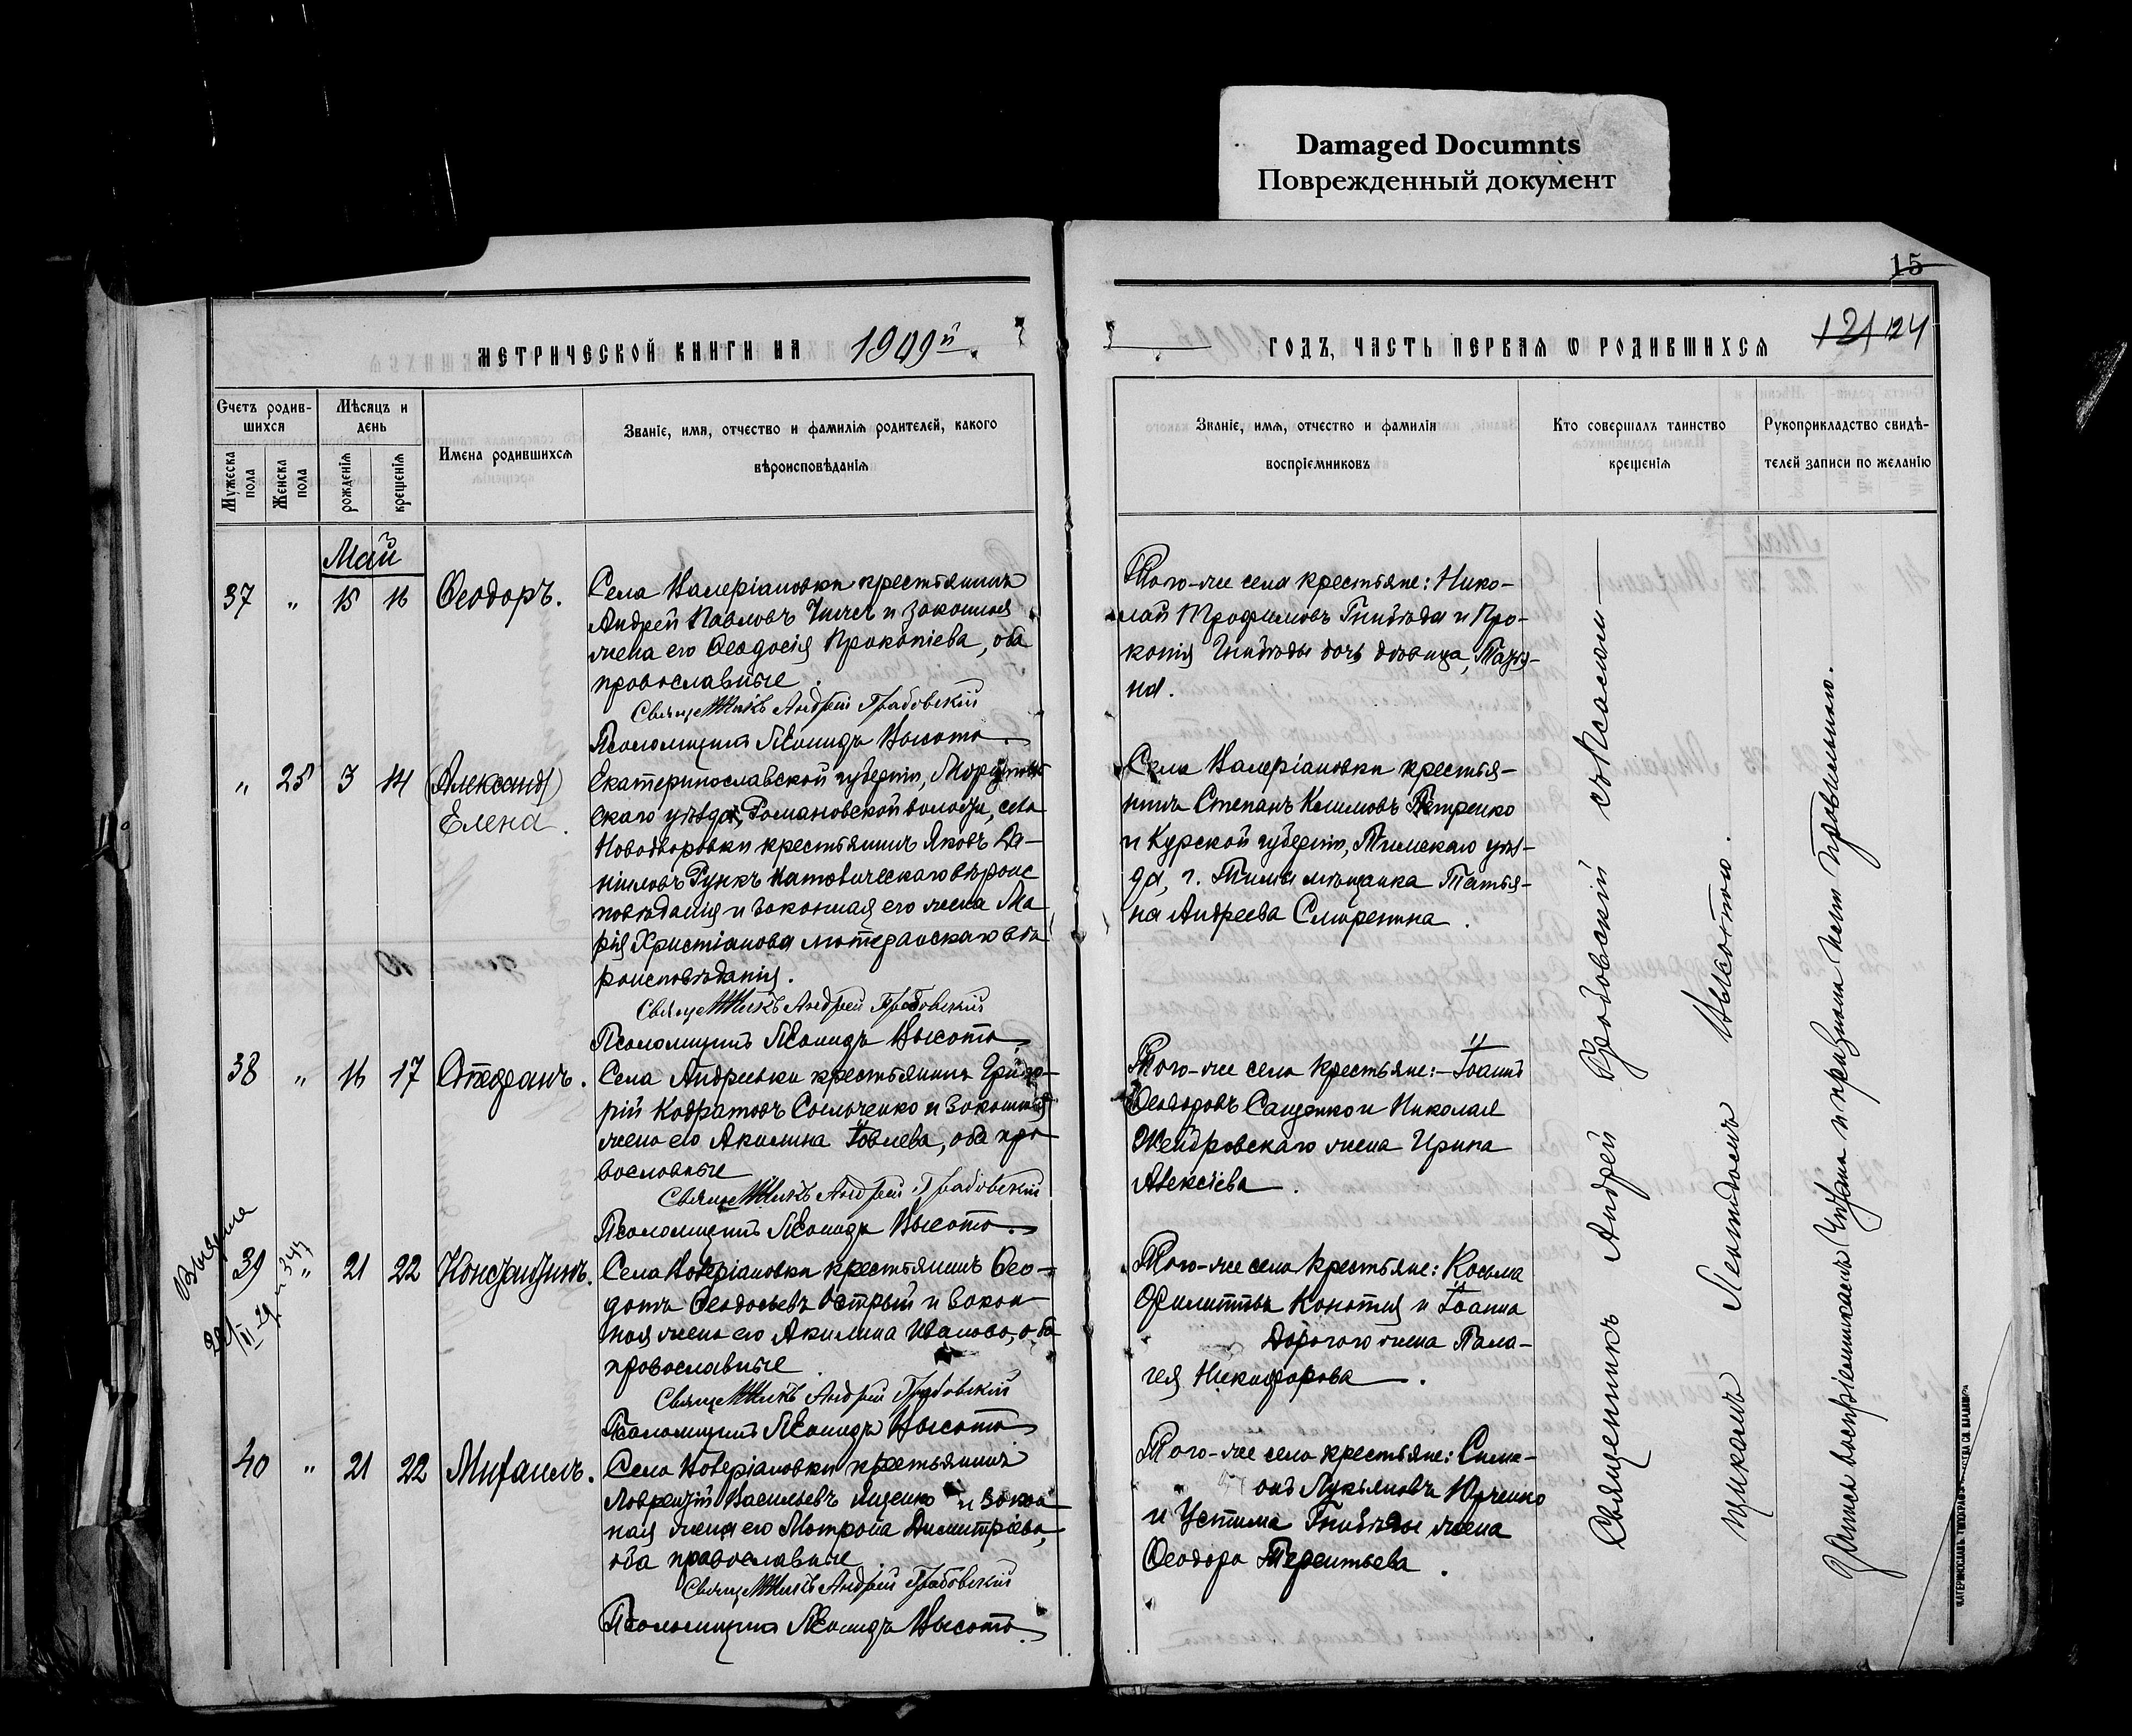 Damaged Documnts
Поврежденный документ
15
МЕТРИЧЕСКОЙ КНИГИ НА 1909й
ГОДЪ, ЧАСТЬ ПЕРВАЯ Ѡ РОДИВШИХСЯ
121 124
Счетъ родив-
шихся
Мѣсяцъ и
день
Мужеска пола
Женска пола
рожденія
крещенія
Имена родившихся
Званіе, имя, отчество и фамилія родителей, какого
вѣроисповѣданія
Званіе, имя, отчество и фамилія
воспріемниковъ
Кто совершалъ таинство
крещенія
Рукоприкладство свидѣ-
телей записи по желанію
Май
37 " 15 16 Ѳеодоръ.
Села Валеріановки крестьянинъ
Андрей Павловъ и законная
жена его Ѳеодосія Прокопіева, оба
православные
Священникъ Андрей Грабовскій
Псаломщикъ Леонидъ Высота
Того-же села крестьяне: Нико-
лай Трофимовъ Гнибѣда и Про-
копія Гнибѣды дочь дѣвица,
" 25 3 14 (Александ)
Елена.
Екатеринославской губерніи, Маріуполь
скаго уѣзда, Романовской волости, села
Новодворовки крестьянинъ Яковъ Да-
ніиловъ Функъ католическаго вѣроис
повѣданія и законная его жена Ма
рія Христіанова лютеранскаго вѣ
роисповѣданія.
Священникъ Андрей Грабовскій
Псаломщикъ Леонидъ Высота
Села Валеріановки крестья-
нинъ Степанъ Климовъ Петренко
и Курской губерніи, Тимскаго уѣз-
да, г. Тима мѣщанка Татья-
на Андреева
38 " 16 17 Стефанъ.
Села Андреевки крестьянинъ Григо-
рій Кодратовъ и законная
жена его Акилина Іовлева, оба пра
вославные
Священникъ Андрей Грабовскій
Псаломщикъ Леонидъ Высота
Того-же села крестьяне:- Іоаннъ
Ѳеодоровъ Саценко и Николая
жена Ирина
Алексіева.
Выдана
39 " 21 22 Константинъ.
Села Валеріановки крестьянинъ Ѳео-
дотъ Ѳеодосьевъ Острый и закон-
ная жена его Акилина Иванова, оба
православные
Священникъ Андрей Грабовскій
Псаломщикъ Леонидъ Высота
Того-же села крестьяне: Косьма
Филипповъ и Іоанна
Дорогого жена Пала-
гея Никифорова.
40 " 21 22 Михаилъ.
Села Валеріановки крестьянинъ
Лаврентій Васильевъ Яценко и закон
ная жена его Матрона Димитріева,
оба православные
Священникъ Андрей Грабовскій
Псаломщикъ Леонидъ Высота.
Того-же села крестьяне: Симе-
онъ Лукьяновъ Юрченко
и Устима Гнибѣды жена
Ѳеодора Терентьева.
Священникъ Андрей Грабовскій съ Псалом-
щикомъ Леонидомъ Высотою.
Запись воспріемниками читана и признана ими правильною.